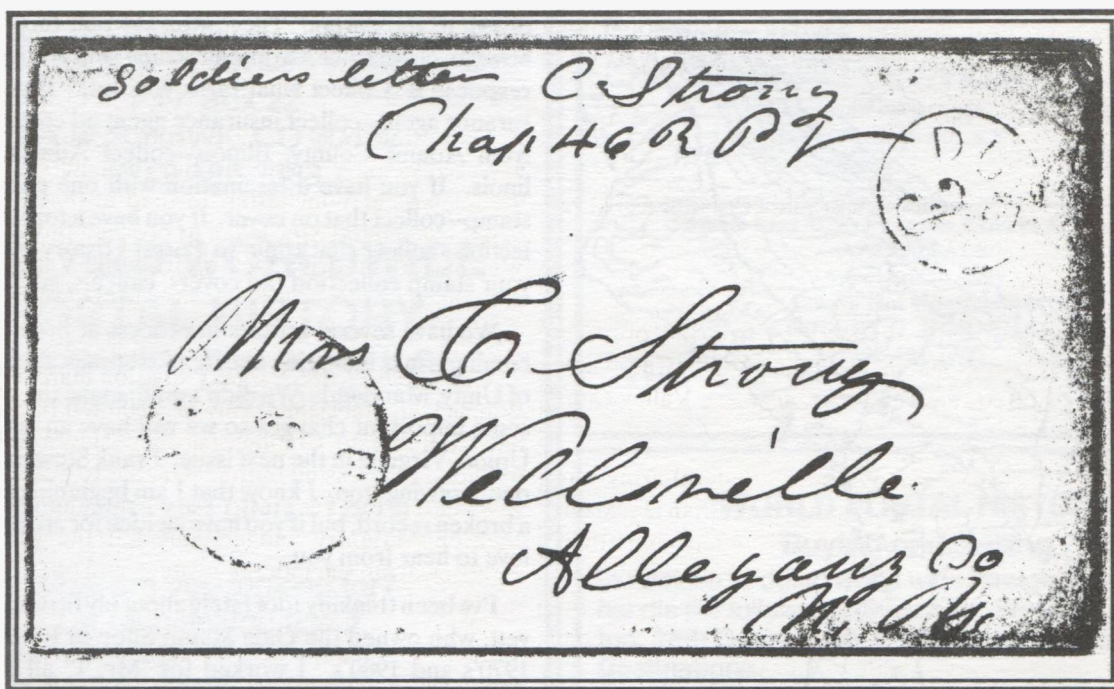 Soldiers letter C. Strong
Chap 46 R P V
DUE
Mrs C. Strong
Wellsville
Allegany Co
N. Y.